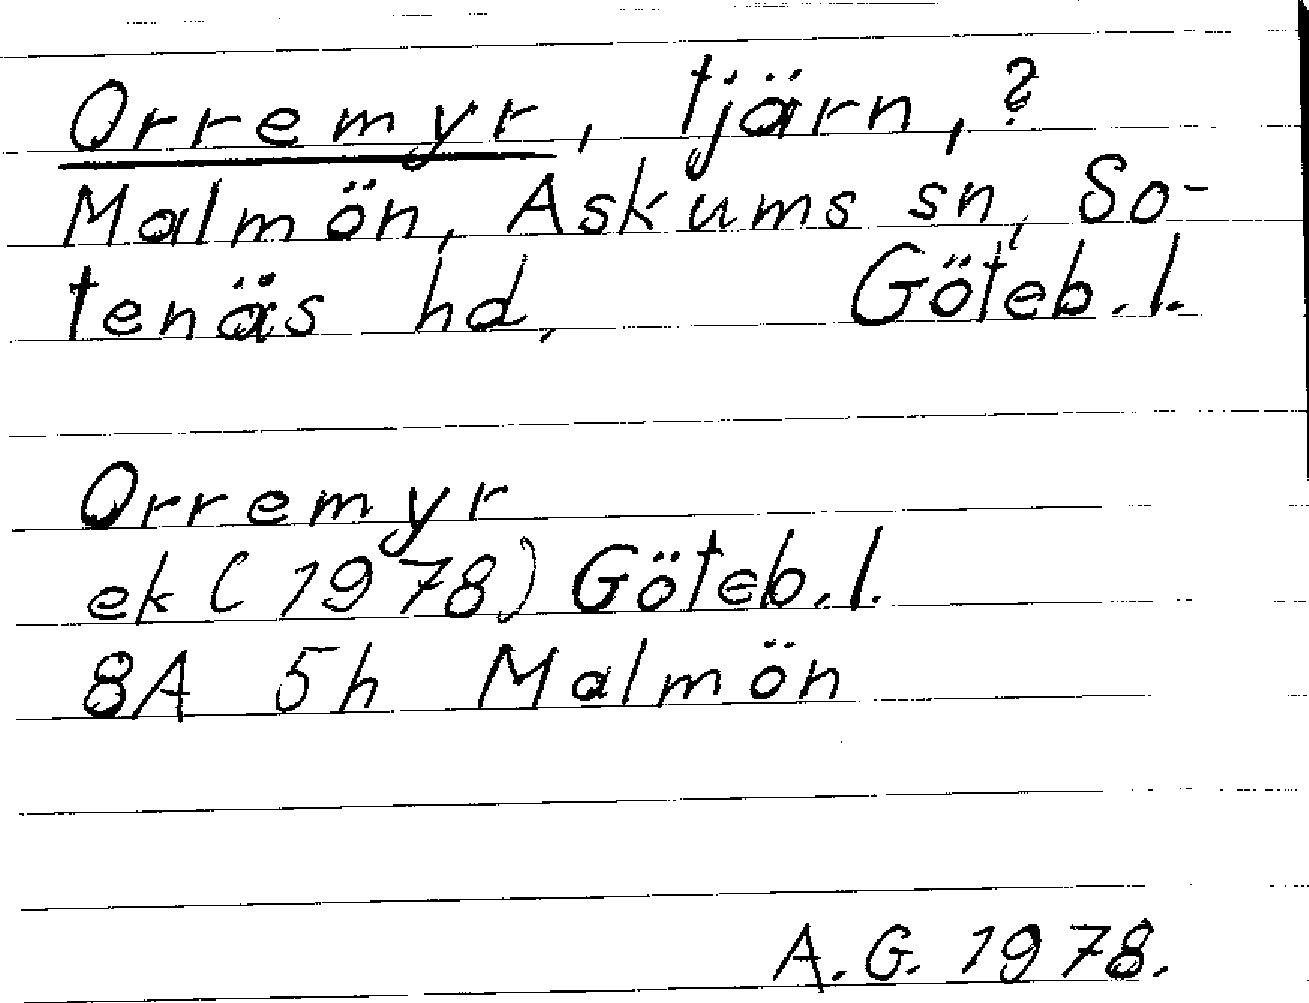 Orremyr, tjärn, ?
Malmön, Askums sn, So-
tenäs hd, Göteb. l.
Orremyr
ek (1978) Göteb. l.
8A 5h Malmön
A. G. 1978.